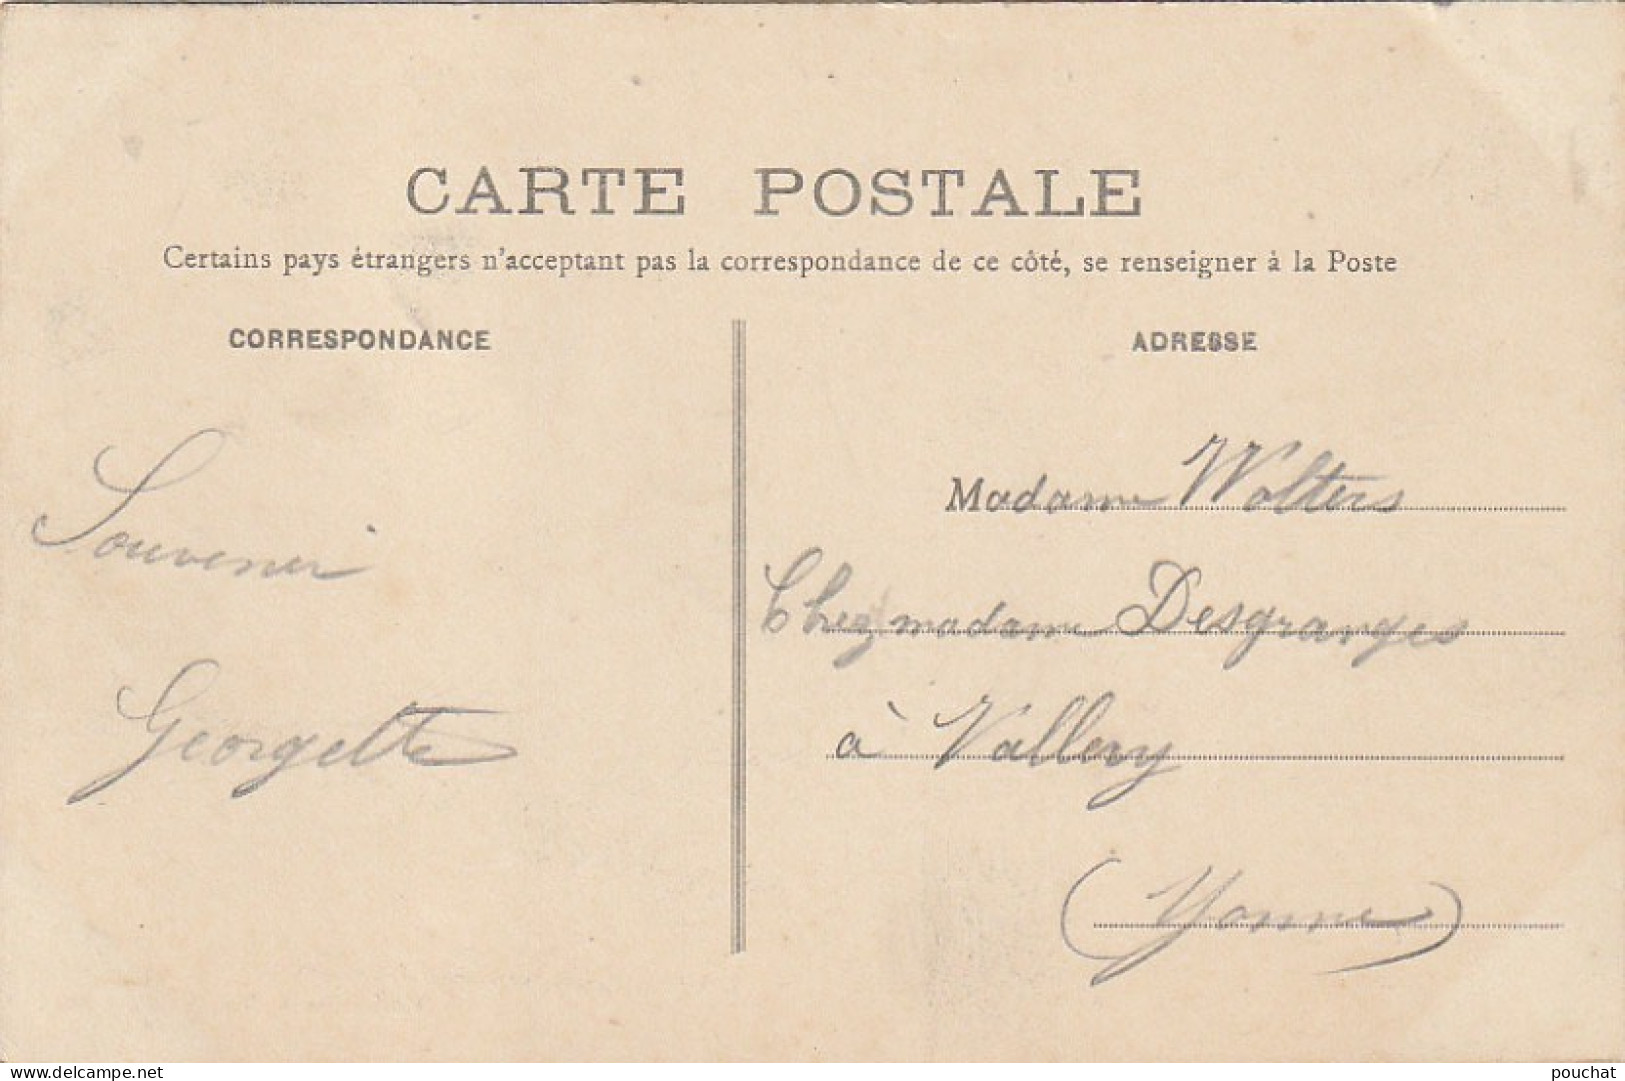 CARTE POSTALE
Certains pays étrangers n'acceptant pas la correspondance de ce côté, se renseigner à la Poste
CORRESPONDANCE
ADRESSE
Souvenir
Georgette
Madame Wolters
Chez madame Desgranges
à Vallery
(Yonne)
www.delcampe.net
pouchat